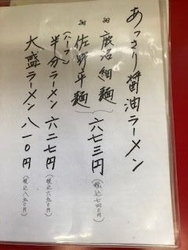 あっさり醤油ラーメン
細麺
佐野平麺
六七三円
(税込七四〇円)
(ハーフ)
半分ラーメン 六二七円
(税込六九〇円)
大盛ラーメン 八一〇円